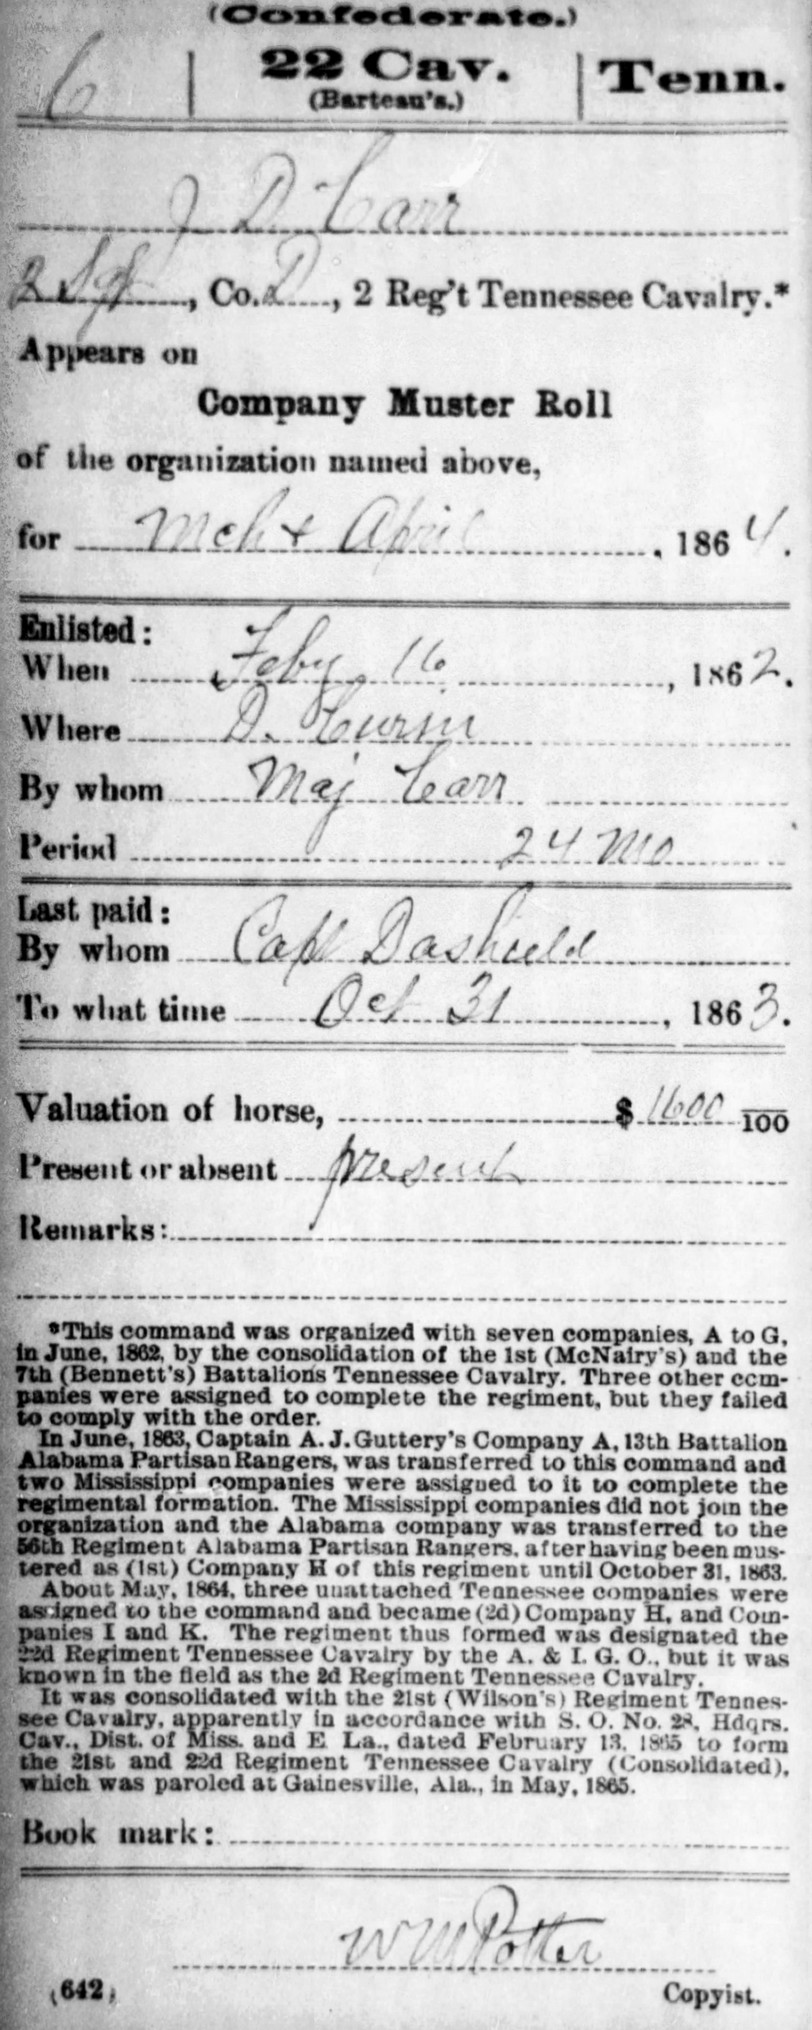 (Confederate.)
6 | 22 Cav. | Tenn.
(Barteau's.)
J D Carr
2 Sgt, Co. D, 2 Reg't Tennessee Cavalry.*
Appears on
Company Muster Roll
of the organization named above,
for Mch & April, 1864.
Enlisted:
When Feby 16, 1862.
Where D.
By whom Maj Carr
Period 24 Mo
Last paid:
By whom Capt Dashield
To what time Oct 31, 1863.
Valuation of horse, $ 1600 /100
Present or absent present
Remarks:
*This command was organized with seven companies, A to G,
in June, 1862, by the consolidation of the 1st (McNairy's) and the
7th (Bennett's) Battalions Tennessee Cavalry. Three other com-
panies were assigned to complete the regiment, but they failed
to comply with the order.
In June, 1863, Captain A. J. Guttery's Company A, 13th Battalion
Alabama Partisan Rangers, was transferred to this command and
two Mississippi companies were assigned to it to complete the
regimental formation. The Mississippi companies did not join the
organization and the Alabama company was transferred to the
56th Regiment Alabama Partisan Rangers, after having been mus-
tered as (1st) Company H of this regiment until October 31, 1863.
About May, 1864, three unattached Tennessee companies were
assigned to the command and became (2d) Company H, and Com-
panies I and K. The regiment thus formed was designated the
22d Regiment Tennessee Cavalry by the A. & I. G. O., but it was
known in the field as the 2d Regiment Tennessee Cavalry.
It was consolidated with the 21st (Wilson's) Regiment Tennes-
see Cavalry, apparently in accordance with S. O. No. 28, Hdqrs.
Cav., Dist. of Miss. and E. La., dated February 13, 1865 to form
the 21st and 22d Regiment Tennessee Cavalry (Consolidated),
which was paroled at Gainesville, Ala., in May, 1865.
Book mark:
W M Potter
(642) Copyist.